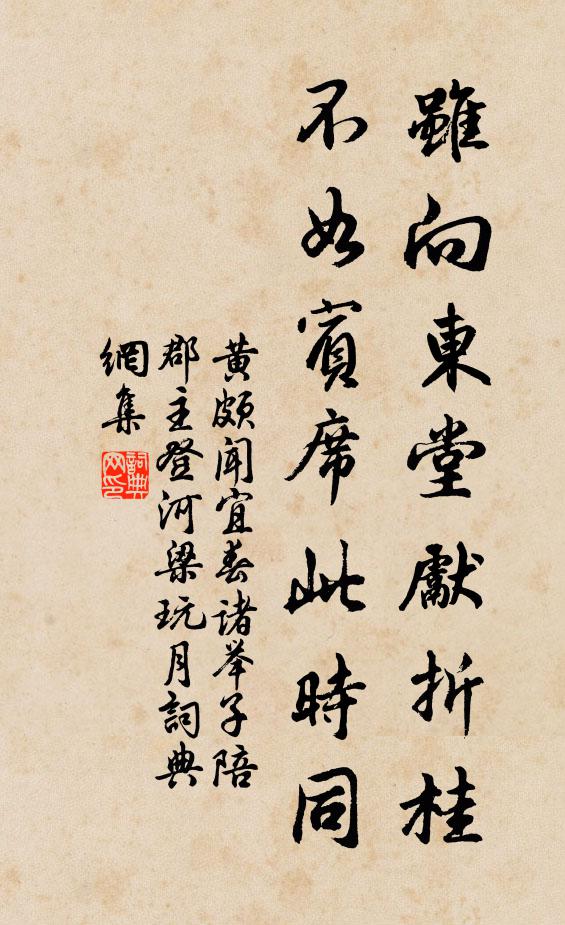 雖向東堂獻折桂
不如賓席此時同
黃頗聞宜春諸举子陪
郡主登河梁玩月詞典
網集
詞典網印